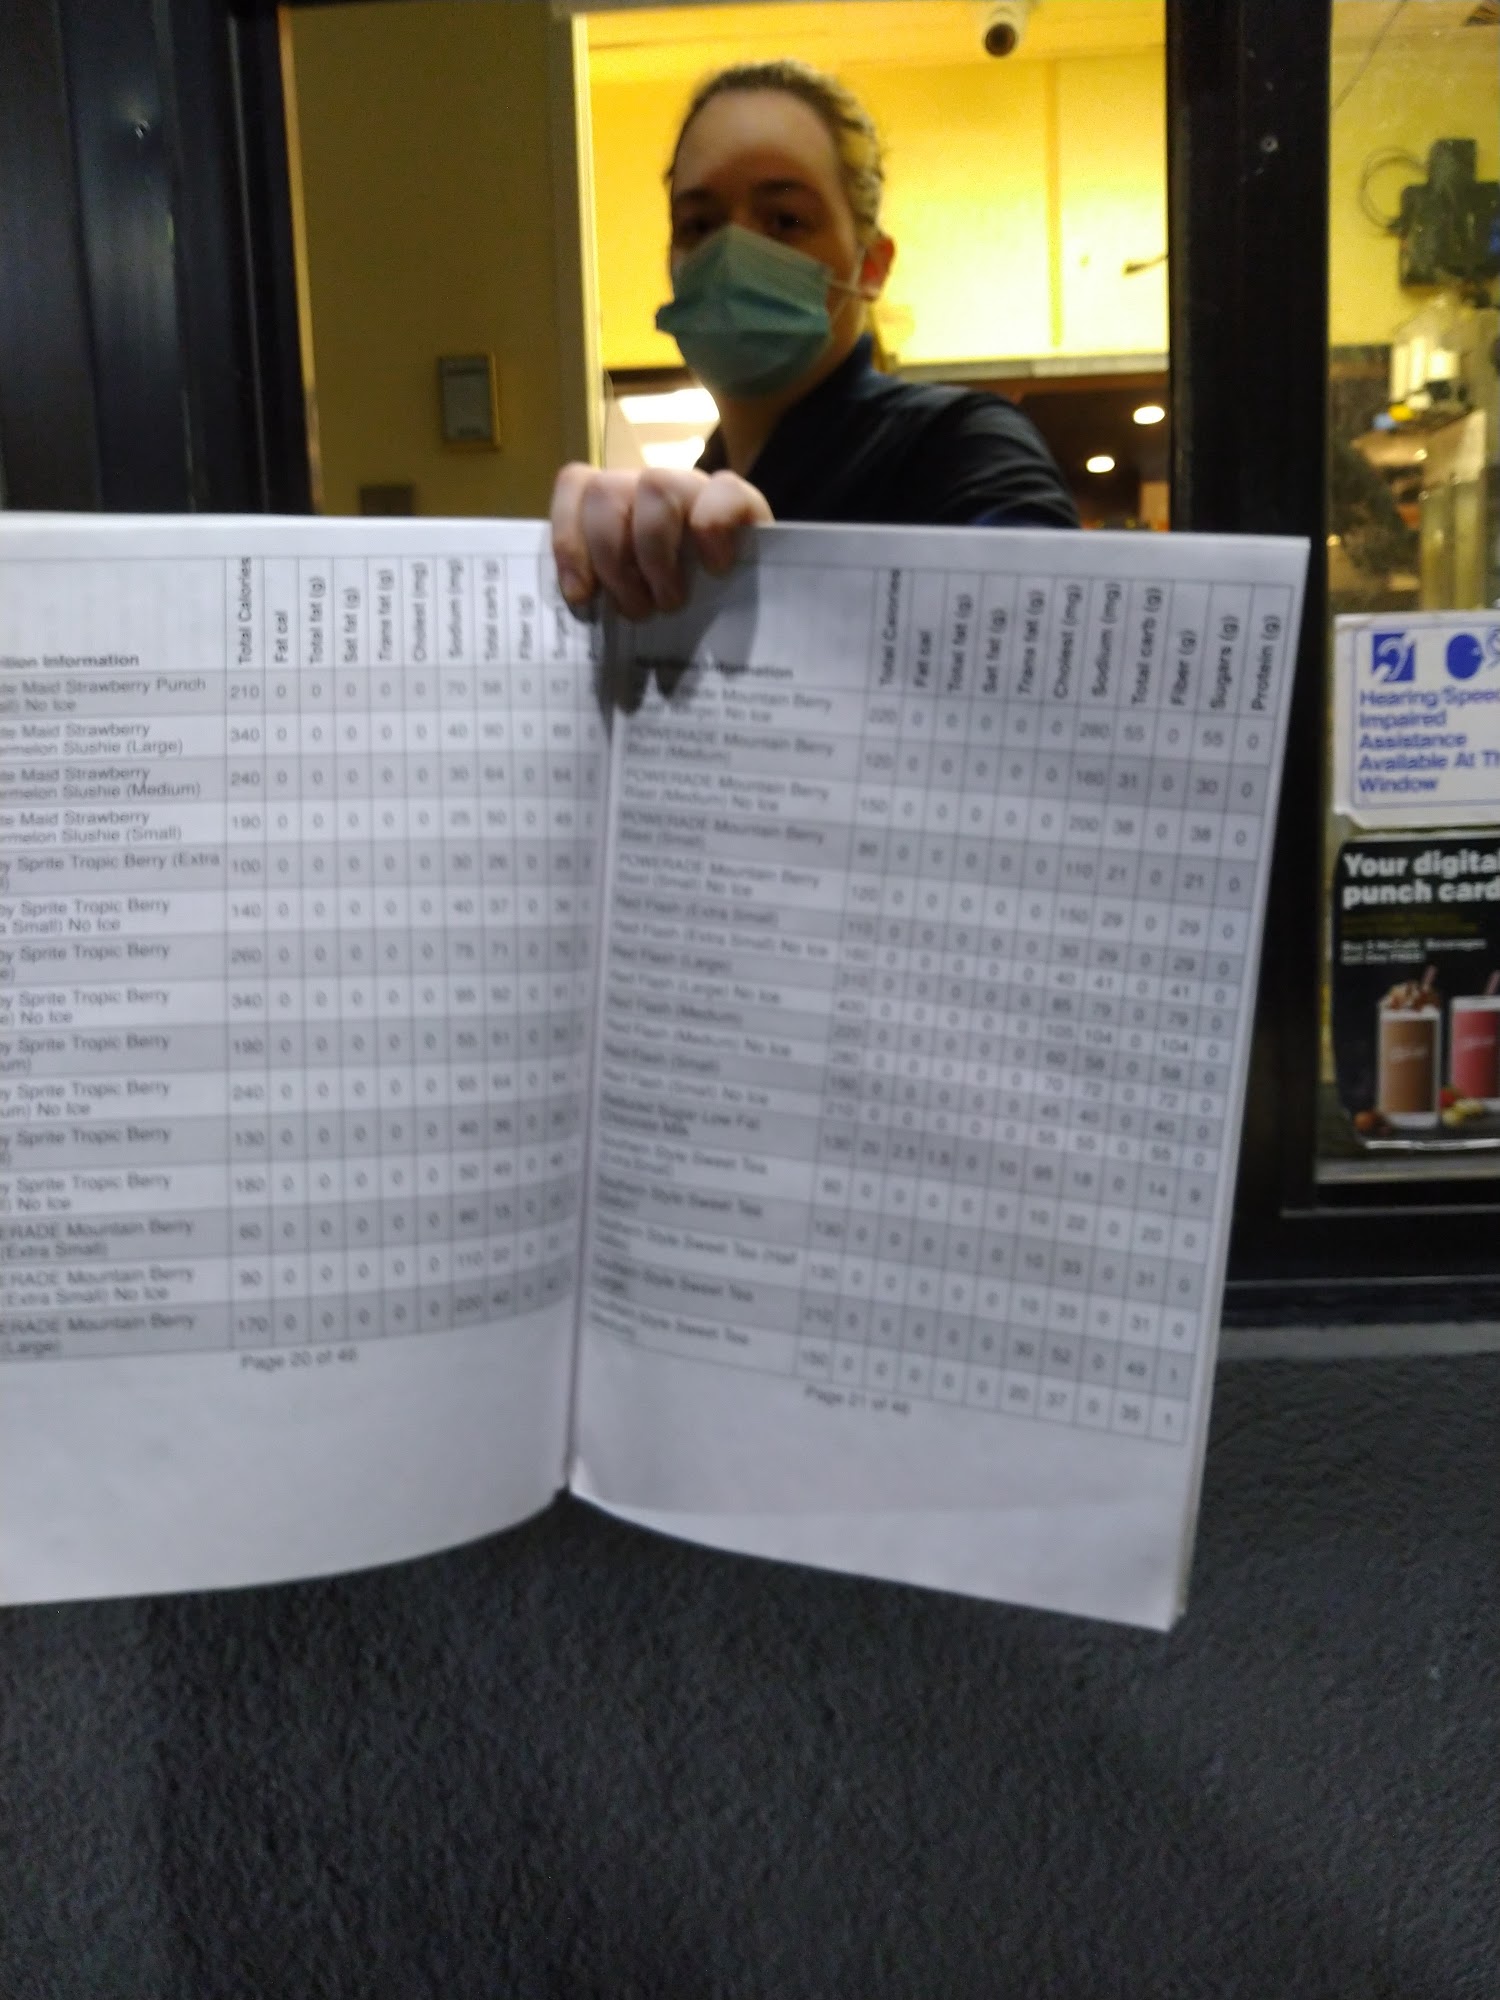 Total Calories
Fat cal
Total fat (g)
Sat fat (g)
Trans fat (g)
Cholest (mg)
Sodium (mg)
Total carb (g)
Fiber (g)
Information
te Maid Strawberry Punch
No Ice
210 0 0 0 0 0 70 58 0 57
te Maid Strawberry
rmelon Slushie (Large)
340 0 0 0 0 0 40 90 0
te Maid Strawberry
rmelon Slushie (Medium)
240 0 0 0 0 0 30 64 0
te Maid Strawberry
rmelon Slushie (Small)
190 0 0 0 0 0 25 50 0
y Sprite Tropic Berry (Extra
100 0 0 0 0 0 30 26 0
y Sprite Tropic Berry
a Small) No Ice
140 0 0 0 0 0 40 37 0
y Sprite Tropic Berry
260 0 0 0 0 0 75 71 0
y Sprite Tropic Berry
e) No Ice
340 0 0 0 0 0
y Sprite Tropic Berry
um)
190 0 0 0 0 0 55 51 0
y Sprite Tropic Berry
um) No Ice
240 0 0 0 0 0 65 64 0
y Sprite Tropic Berry
130 0 0 0 0 0 40
y Sprite Tropic Berry
No Ice
180 0 0 0 0 0 50
ERADE Mountain Berry
(Extra Small)
60 0 0 0 0 0 80 15 0
ERADE Mountain Berry
(Extra Small) No Ice
90 0 0 0 0 0 110
ERADE Mountain Berry
(Large)
170 0 0 0 0 0 220
Page 20 of 46
Total Calories
Fat cal
Total fat (g)
Sat fat (g)
Trans fat (g)
Cholest (mg)
Sodium (mg)
Total carb (g)
Fiber (g)
Sugars (g)
Protein (g)
Information
Mountain Berry
No Ice
220 0 0 0 0 0 280 55 0 55 0
POWERADE Mountain Berry
Blast (Medium)
120 0 0 0 0 0 160 31 0 30 0
POWERADE Mountain Berry
Blast (Medium) No Ice
150 0 0 0 0 0 200 38 0 38 0
POWERADE Mountain Berry
Blast (Small)
80 0 0 0 0 0 110 21 0 21 0
POWERADE Mountain Berry
Blast (Small) No Ice
120 0 0 0 0 0 150 29 0 29 0
Red Flash (Extra Small)
110 0 0 0 0 0 30 29 0 29 0
Red Flash (Extra Small) No Ice
160 0 0 0 0 0 40 41 0 41 0
Red Flash (Large)
310 0 0 0 0 0 85 79 0 79 0
Red Flash (Large) No Ice
400 0 0 0 0 0 105 104 0 104 0
Red Flash (Medium)
220 0 0 0 0 0 60 58 0 58 0
Red Flash (Medium) No Ice
280 0 0 0 0 0 70 72 0 72 0
Red Flash (Small)
150 0 0 0 0 0 45 40 0 40 0
Red Flash (Small) No Ice
210 0 0 0 0 0 55 55 0 55 0
Reduced Sugar Low Fat
Chocolate Milk
130 20 2.5 1.5 0 10 95 18 0 14 9
Southern Style Sweet Tea
(Extra Small)
80 0 0 0 0 0 10 22 0 20 0
Southern Style Sweet Tea
130 0 0 0 0 0 10 33 0 31 0
Southern Style Sweet Tea (Half
130 0 0 0 0 0 10 33 0 31 0
Southern Style Sweet Tea
(Large)
210 0 0 0 0 0 30 52 0 49 1
Southern Style Sweet Tea
(Medium)
150 0 0 0 0 0 20 37 0 35 1
Page 21 of 46
Hearing/Speec
Impaired
Assistance
Available At Th
Window
Your digital
punch card